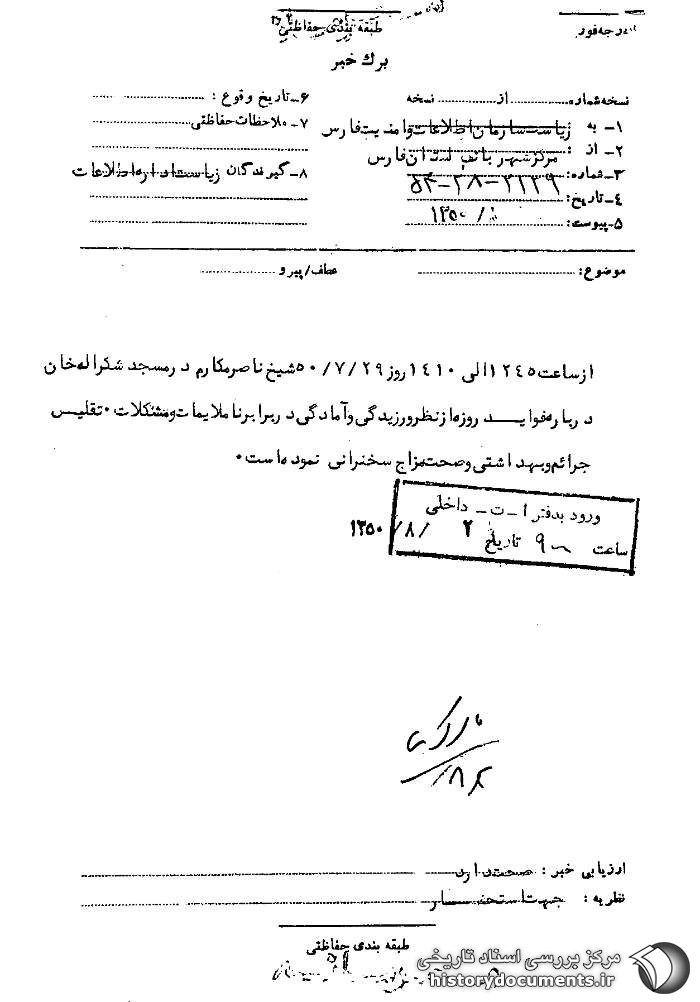 درجه فوریت
طبقه بندی حفاظتی
برگ خبر
نسخه شماره از نسخه
۱ـ به ریاست سازمان اطلاعات و امنیت فارس
۲ـ از : مرکز شهربانی استان فارس
۳ـ شماره: ۲۱۲۹-۲۸-۵۴
۴ـ تاریخ: ۱۳۵۰/
۵ـ پیوست:
۶ـ تاریخ وقوع :
۷ـ ملاحظات حفاظتی
۸ـ گیرندگان ریاست اداره اطلاعات
موضوع: عطف/پیرو
از ساعت ۱۲۴۵ الی ۱۴۱۰ روز ۵۰/۷/۲۹ شیخ ناصر مکارم در مسجد شکراله خان
درباره فواید روزه از نظر ورزیدگی و آمادگی در برابر ناملایمات و مشکلات ۰ تقلیس
جرائم و بهداشتی و صحت مزاج سخنرانی نموده است ۰
ورود بدفتر ا ـ ت ـ داخلی
ساعت ۹۰۰ تاریخ ۲ /۸/ ۱۳۵۰
ارزیابی خبر : صحت دارد
نظریه : جهت استحضار
طبقه بندی حفاظتی
مرکز بررسی اسناد تاریخی
historydocuments.ir